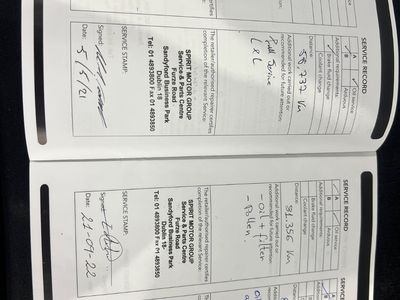 SERVICE RECORD
A Oil service
B Arduous
Additional requirements:
Brake fluid change
Coolant change
Distance: 58,732 km
Additional work carried out or
recommended for future attention:
Full Service
The retailer/authorised repairer certifies
completion of the relevant Service:
SPIRIT MOTOR GROUP
Service & Parts Centre
Furze Road
Sandyford Business Park
Dublin 18
Tel: 01 4893800 Fax 01 4893850
SERVICE STAMP:
Signed:
Date: 5/5/21
SERVICE RECORD
A Oil service
B Arduous
Additional requirements:
Brake fluid change
Coolant change
Distance: 81,356 km
Additional work carried out or
recommended for future attention:
- oil + filter
- Pollen.
The retailer/authorised repairer certifies
completion of the relevant Service:
SPIRIT MOTOR GROUP
Service & Parts Centre
Furze Road
Sandyford Business Park
Dublin 18
Tel: 01 4893800 Fax 01 4893850
SERVICE STAMP:
Signed:
Date: 21-09-22